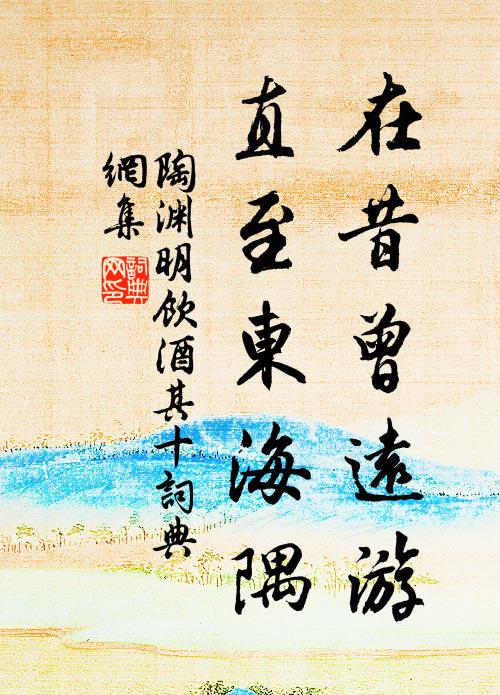 在昔曾遠游
直至東海隅
陶渊明飲酒其十詞典
網集
詞典
网印